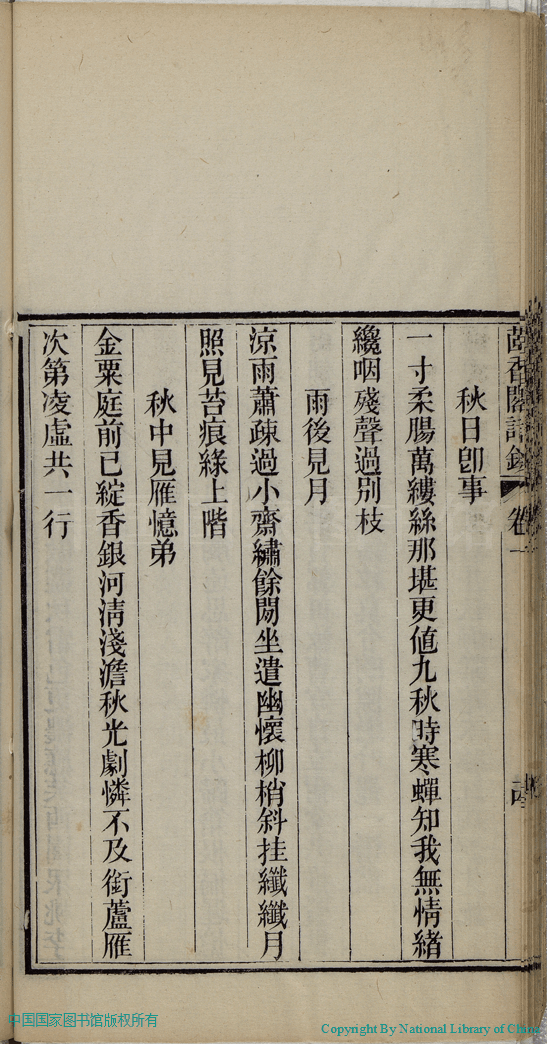 香閣詩鈔 卷一
秋日卽事
一寸柔腸萬縷絲那堪更値九秋時寒蟬知我無情緒
纔咽殘聲過別枝
雨後見月
凉雨蕭疎過小齋繡餘閒坐遣幽懷柳梢斜挂纖纖月
照見苔痕綠上階
秋中見雁憶弟
金粟庭前已綻香銀河淸淺澹秋光劇憐不及銜蘆雁
次第凌虛共一行
中国国家图书馆版权所有
Copyright By National Library of China